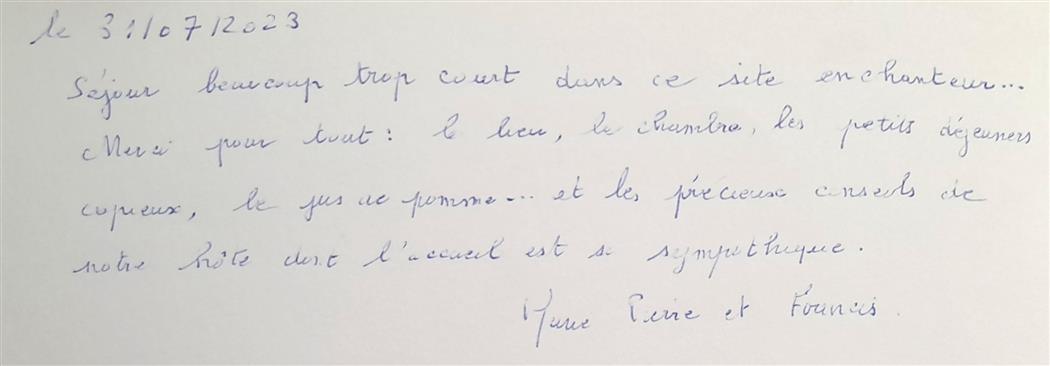 le 31/07/2023
Séjour beaucoup trop court dans ce site enchanteur...
Merci pour tout : le lieu, la chambre, les petits déjeuners
copieux, le jus de pomme... et les précieux conseils de
notre hôte dont l'accueil est si sympathique.
Marie Pierre et Francis.